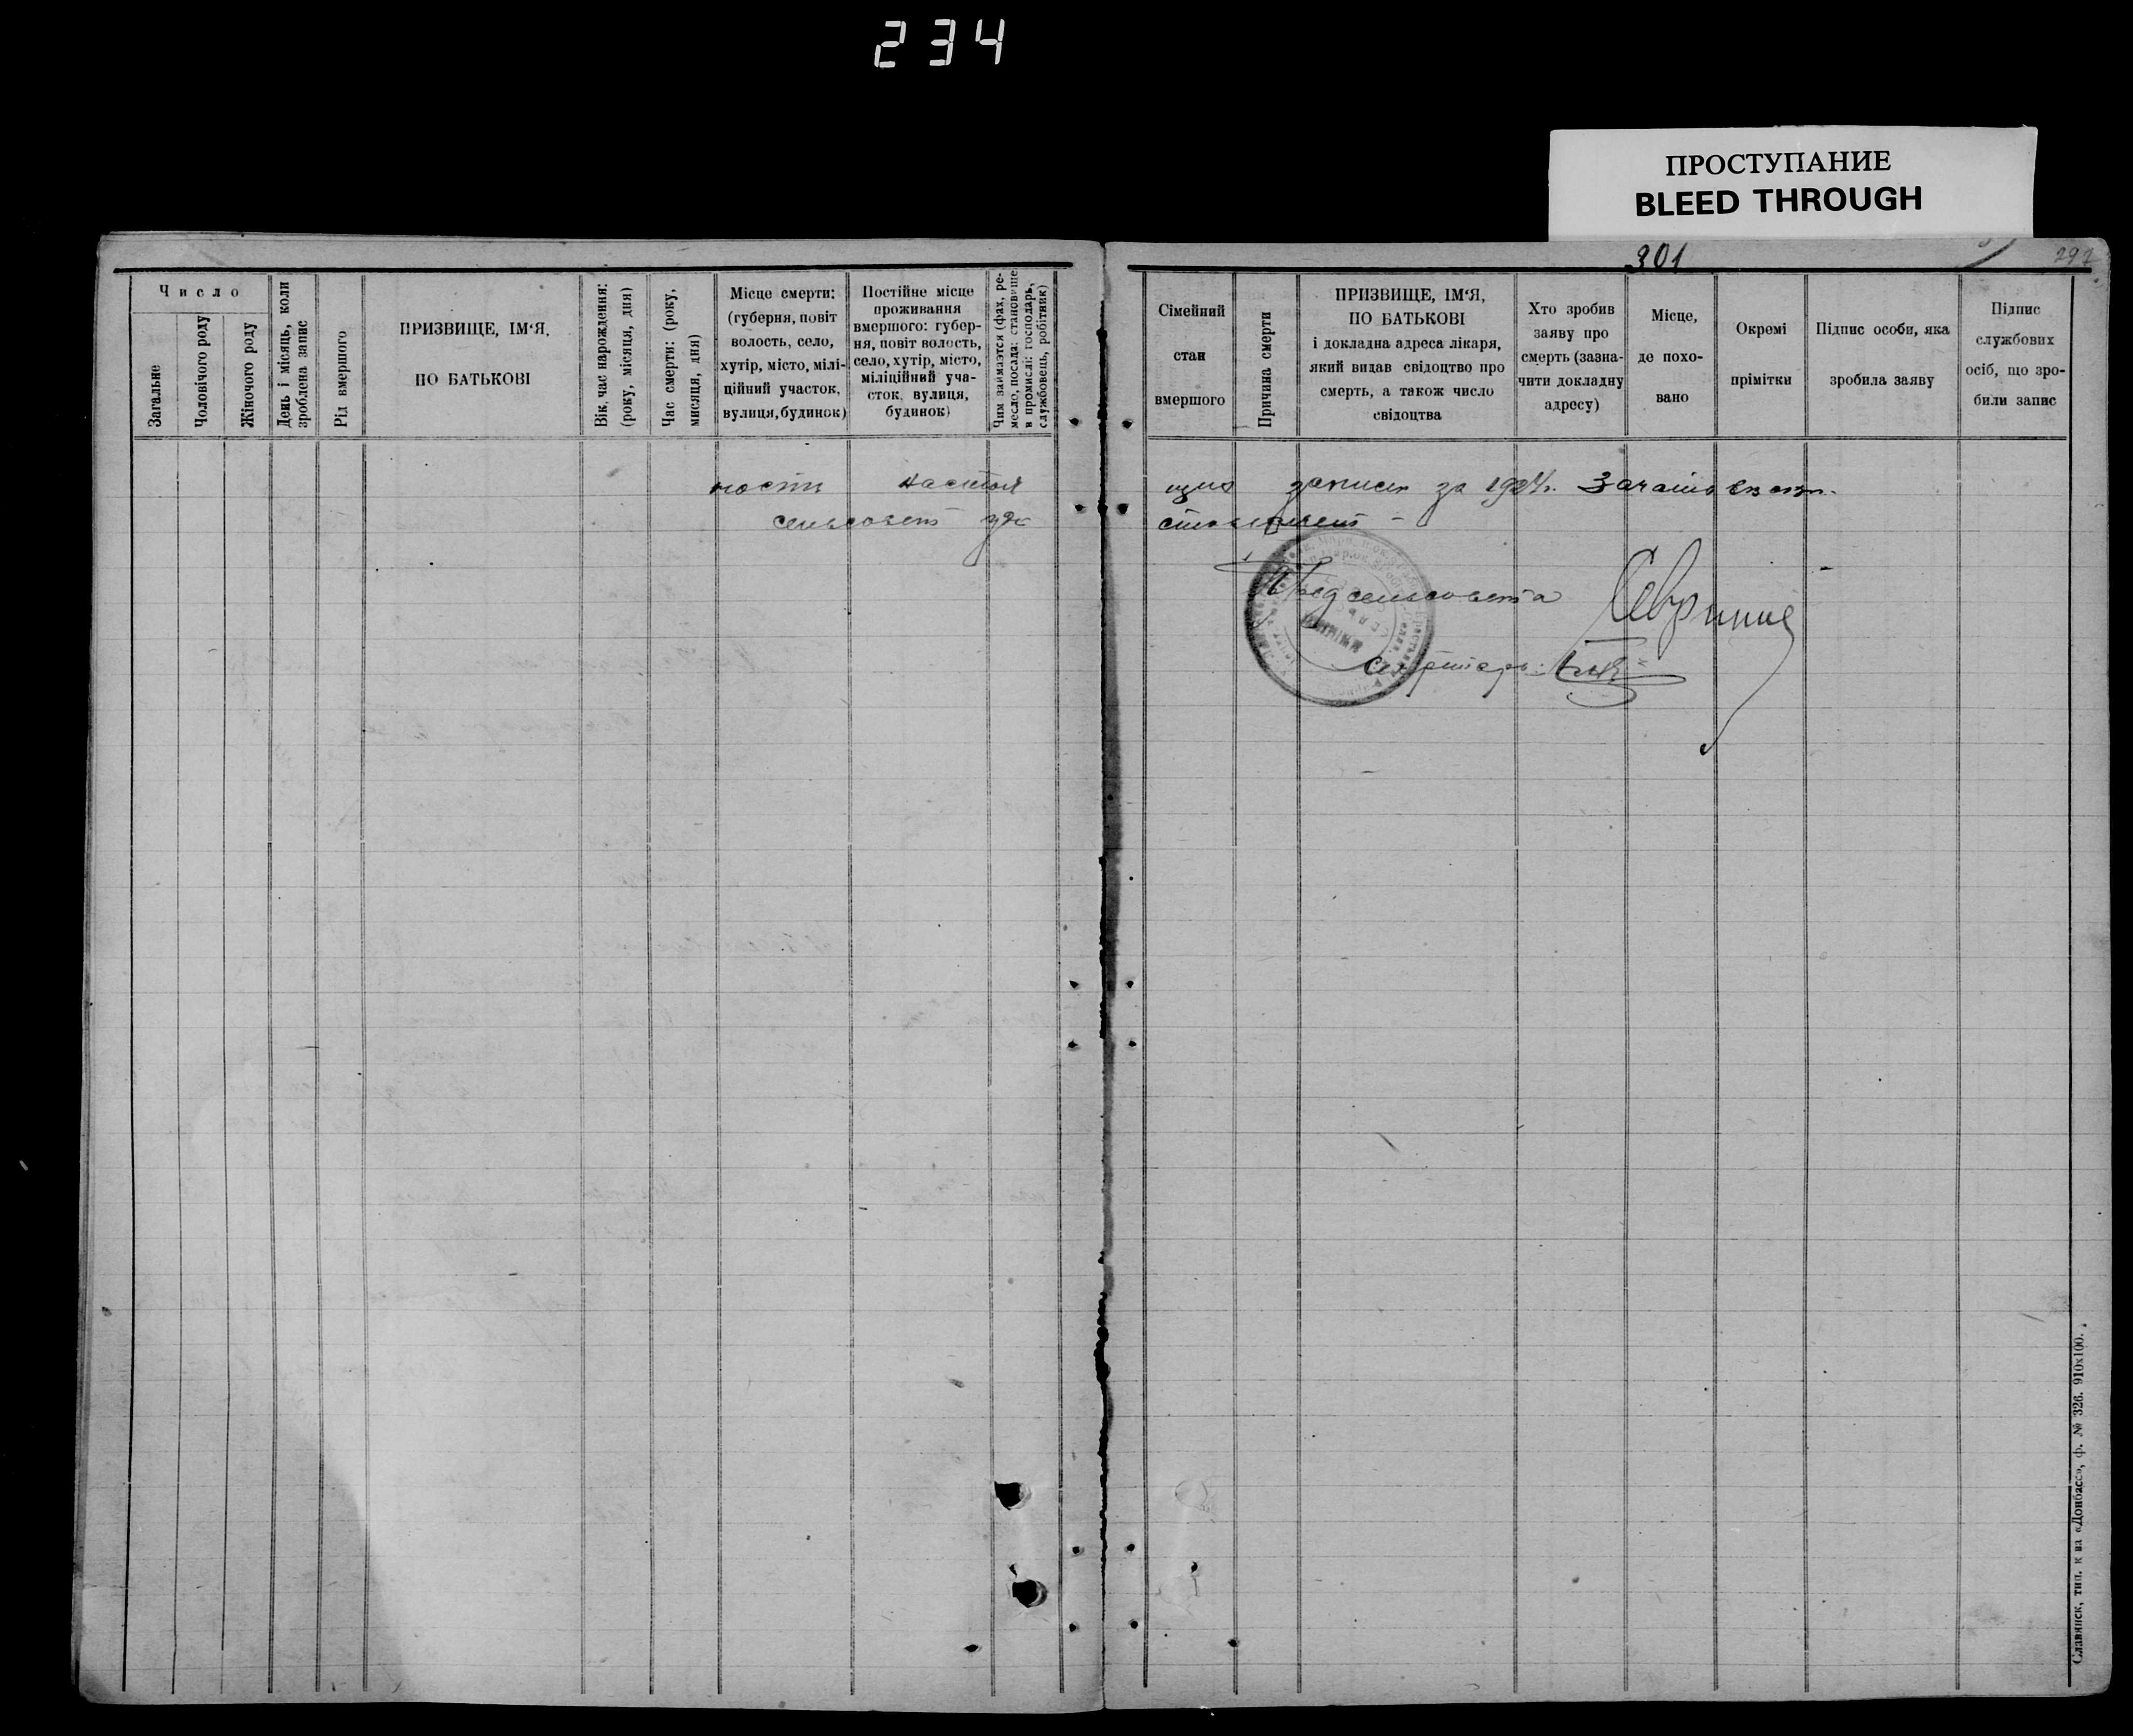 234
ПРОСТУПАНИЕ
BLEED THROUGH
301
292
Число
Загальне
Чоловічого роду
Жіночого роду
День і місяць, коли
зроблена запис
Рід вмершого
ПРИЗВИЩЕ, ІМ‘Я,
ПО БАТЬКОВІ
Вік, час нарождення:
(року, місяця, дня)
Час смерти: (року,
мисяця, дня)
Місце смерти:
(губерня, повіт
волость, село,
хутір, місто, мілі-
ційний участок,
вулиця, будинок)
Постійне місце
проживання
вмершого: губер-
ня, повіт волость,
село, хутір, місто,
міліційний уча-
сток, вулиця,
будинок)
Чим займаэтся (фах, ре-
месло, посада: становище
в промислі: господарь,
службовець, робітник)
Сімейний
стан
вмершого
Причина смерти
ПРИЗВИЩЕ, ІМ‘Я,
ПО БАТЬКОВІ
і докладна адреса лікаря,
який видав свідоцтво про
смерть, а також число
свідоцтва
Хто зробив
заяву про
смерть (зазна-
чити докладну
адресу)
Місце,
де похо-
вано
Окремі
прімітки
Підпис особи, яка
зробила заяву
Підпис
службових
осіб, що зро-
били запис
ности настоя щия записи за 1924 г. Зачатовский
сельсовет удо стоверяет –
Пред сельсовета
Секретарь:
Славянск, тип. к ва «Донбасс», ф. № 326. 910х100.